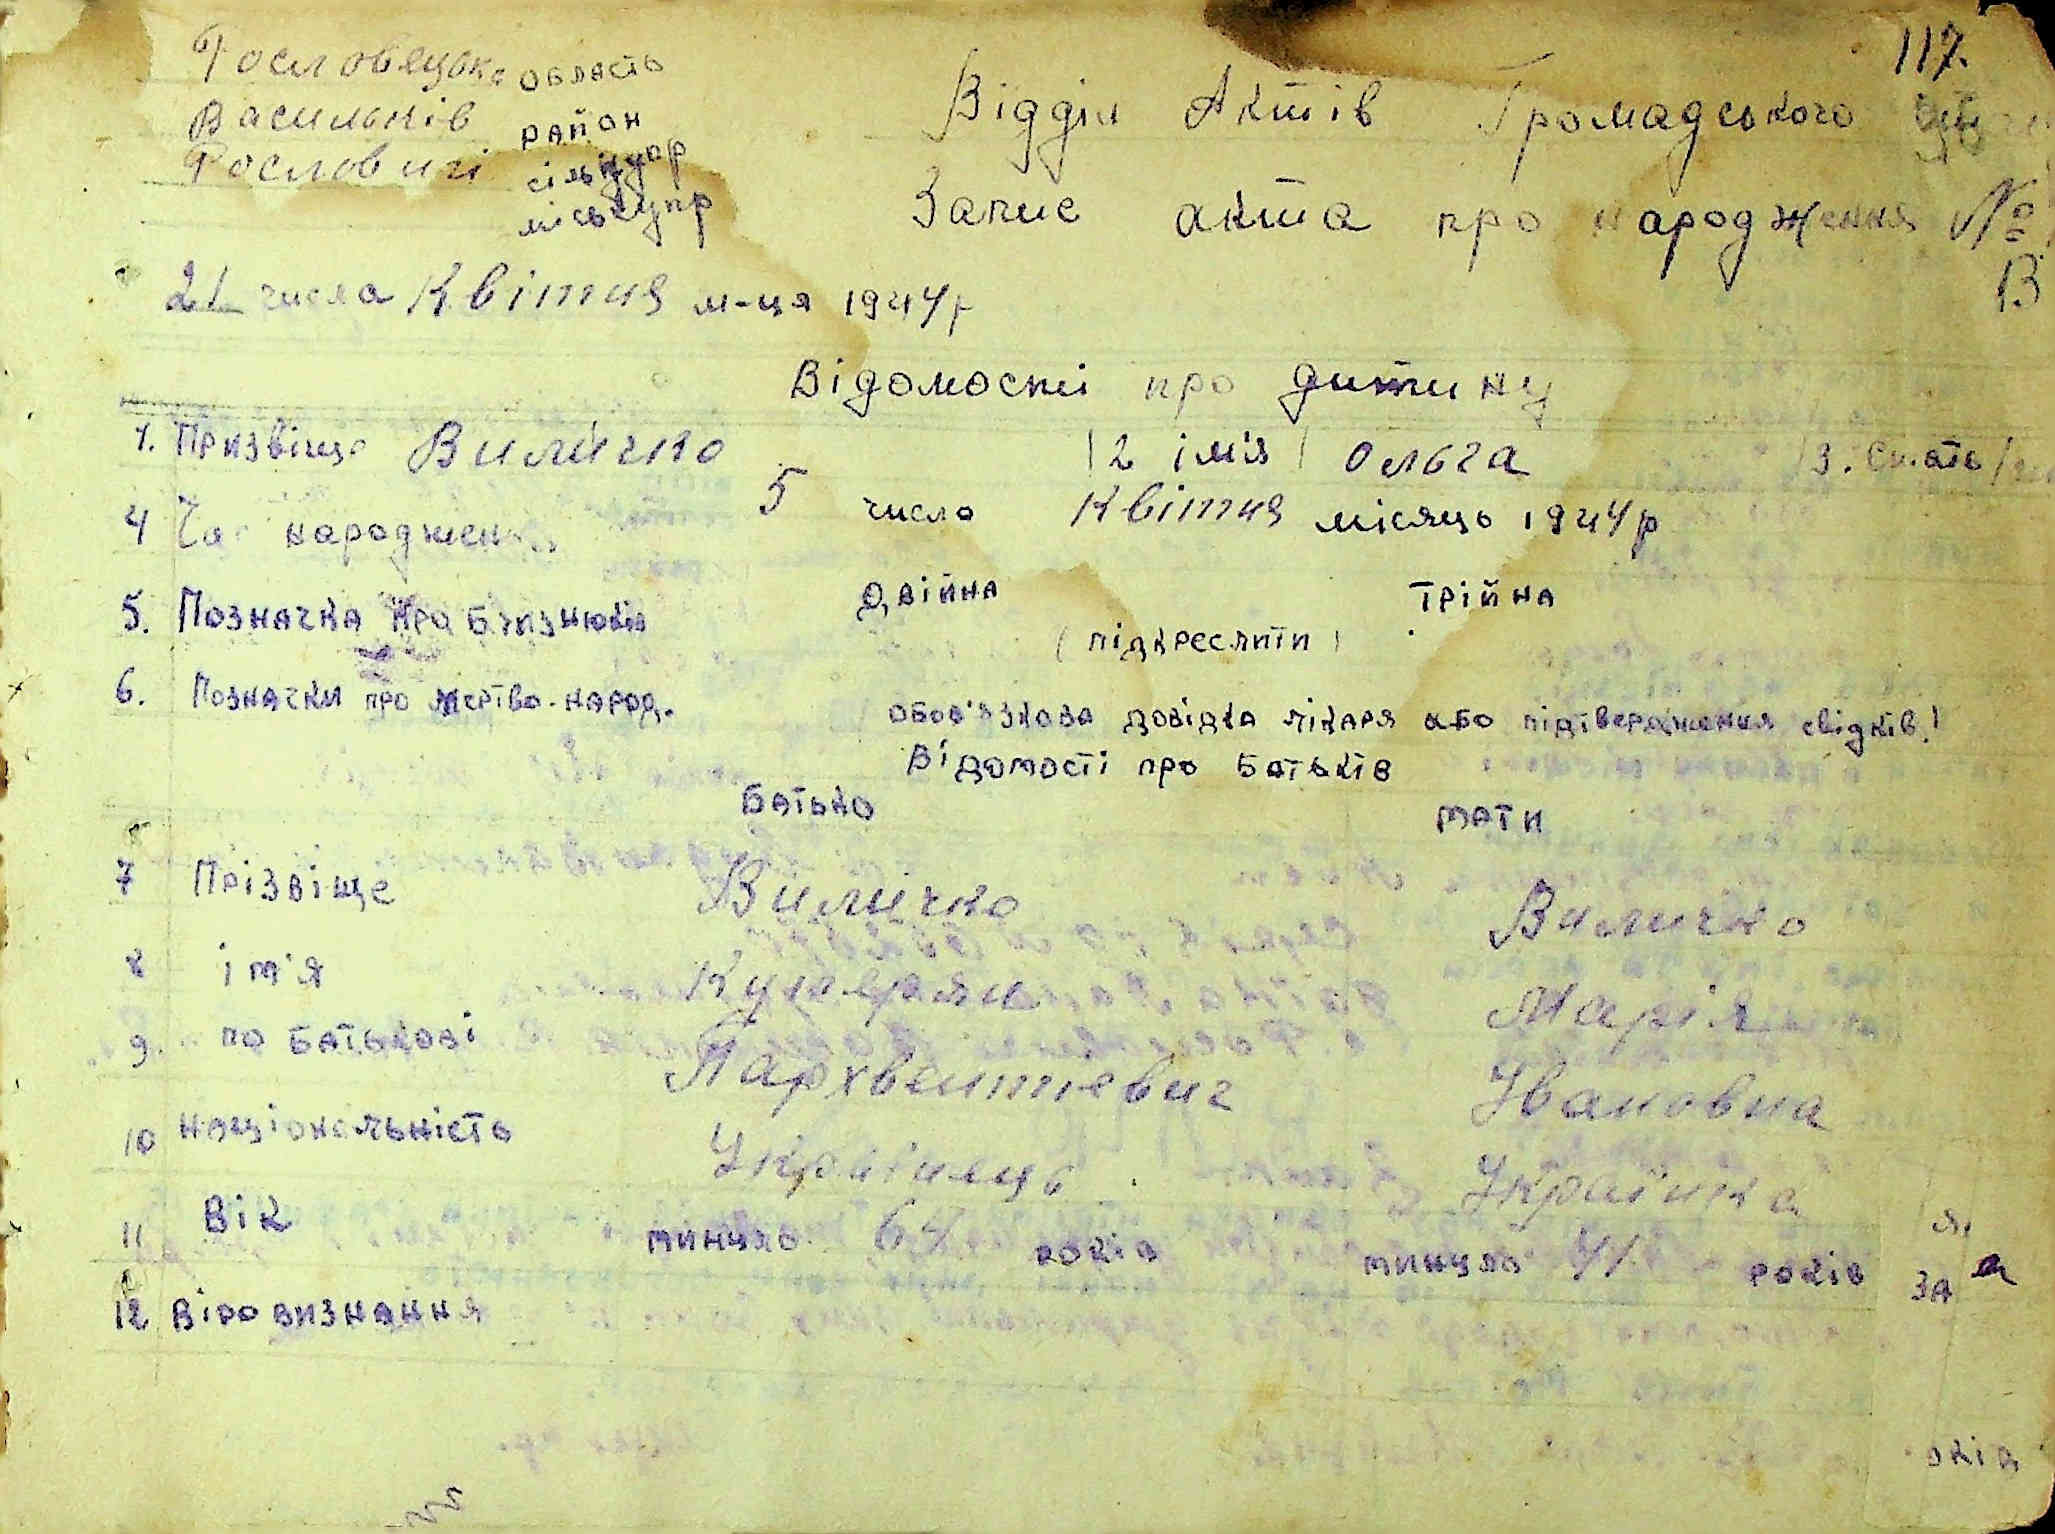 117.
Рословецька область
Васильків район
Рословичі сільупр
міськупр
Відділ Актів Громадського
Запис акта про народження №
13
21 числа Квітня м-ця 1944р
Відомості про дитину
1. Призвіще Виличко | 2 ім'я | Ольга | 3. Стать |
4 Час народжен 5 число Квітня місяць 1944р
5. Позначка про близнюків двійна трійна
(підкреслити)
6. Позначки про мертво-народ. обов'язкова довідка лікаря або підтвердження свідків!
Відомості про батьків
Батько мати
7 Прізвіще Виличко Виличко
8 ім'я Марія
9. по батькові Пархвентіевич Івановна
10 національність Українець Українка
11 Вік минуло 64 років минуло 41 років
12 Віровизнання
за